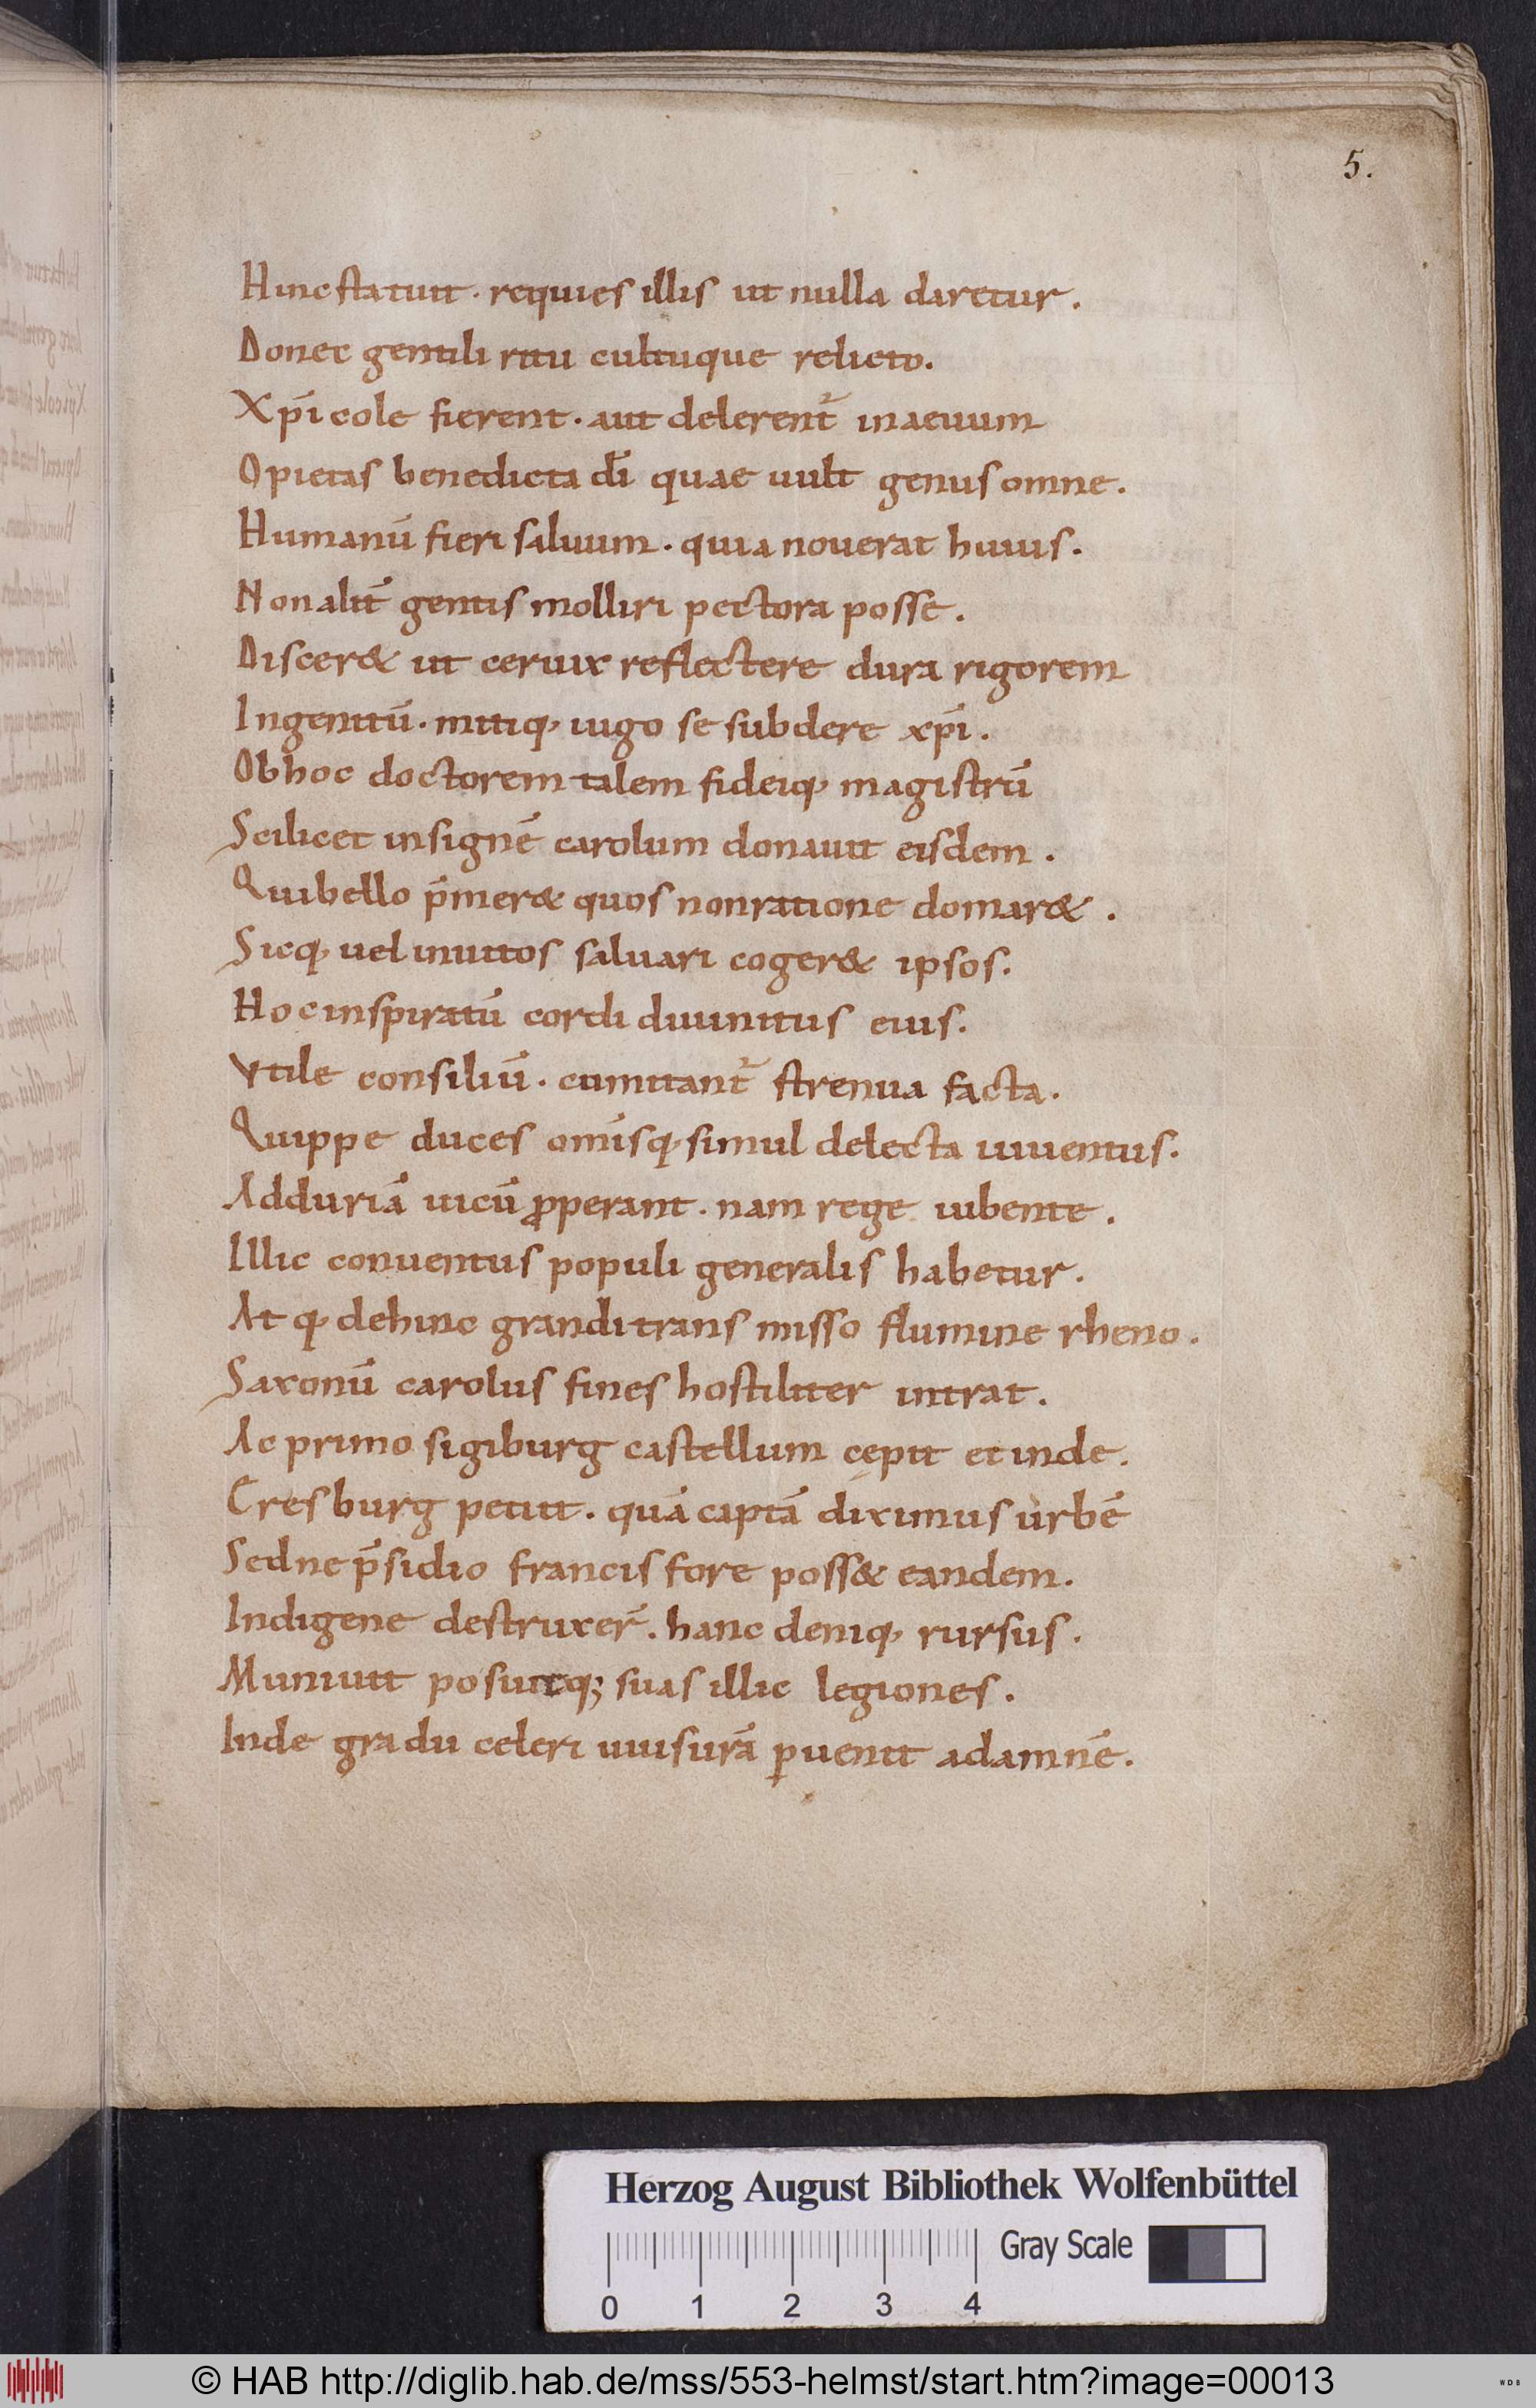 5.
Hinc statuit · requies illis ut nulla daretur .
Donec gentili ritu cultuque relicto.
Xp̄icole fierent · aut delerent᷑ in aeuum
O pietas benedicta dī quae uult genus omne .
Humanū fieri saluum · quia nouerat huius .
Non alit̄ gentis molliri pectora posse .
Discer& ut ceruix reflectere dura rigorem
Ingenitū · mitiq, iugo se subdere xp̄i .
Ob hoc doctorem talem fideiq, magistrū
Scilicet insignē carolum donauit eisdem .
Qui bello p̄mer& quos non ratione domar& .
Sicq, uel inuitos saluari coger& ipsos .
Hoc inspiratū cordi diuinitus eius .
Vtile consiliū · cumitant᷑ strenua facta .
Quippe duces om̄isq, simul delecta iuuentus .
Ad duriā uicū ꝓperant · nam rege iubente .
Illic conuentus populi generalis habetur .
Atq, dehinc grandi transmisso flumine rheno .
Saxonū carolus fines hostiliter intrat .
Ac primo sigiburg castellum cępit et inde .
Cresburg petiit · quā captā diximus urbē
Sed ne p̄sidio francis fore poss& eandem .
Indigene destruxer̄ · hanc deniq, rursus .
Muniuit posuitq; suas illic legiones .
Inde gradu celeri uuisurā ꝑuenit ad amnē .
Herzog August Bibliothek Wolfenbüttel
Gray Scale
0 1 2 3 4
© HAB http://diglib.hab.de/mss/553-helmst/start.htm?image=00013
WDB